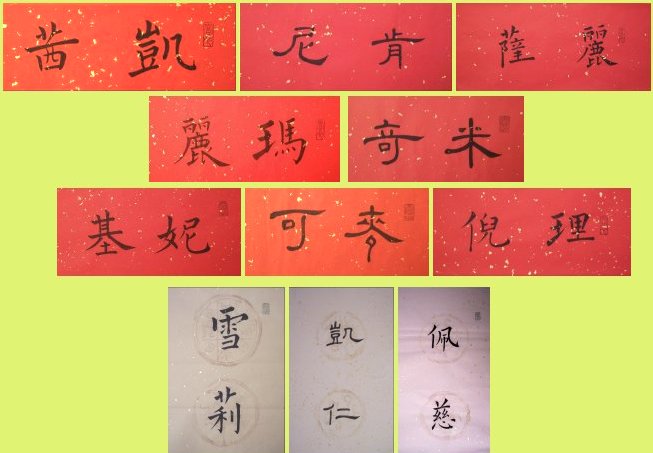 凱茜
肯尼
麗薩
瑪麗
米奇
妮基
麥可
理倪
雪莉
凱仁
佩慈